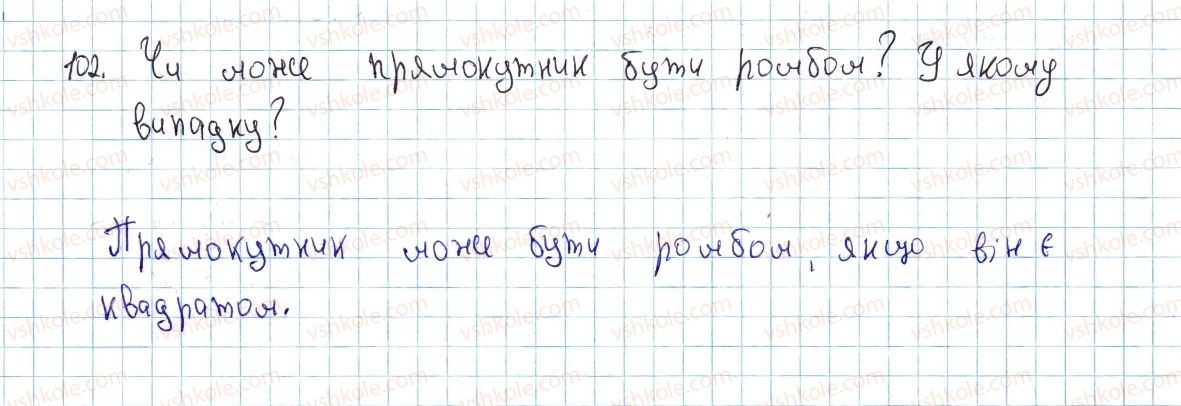 102. Чи може прямокутник бути ромбом? У якому
випадку?
Прямокутник може бути ромбом, якщо він є
квадратом.